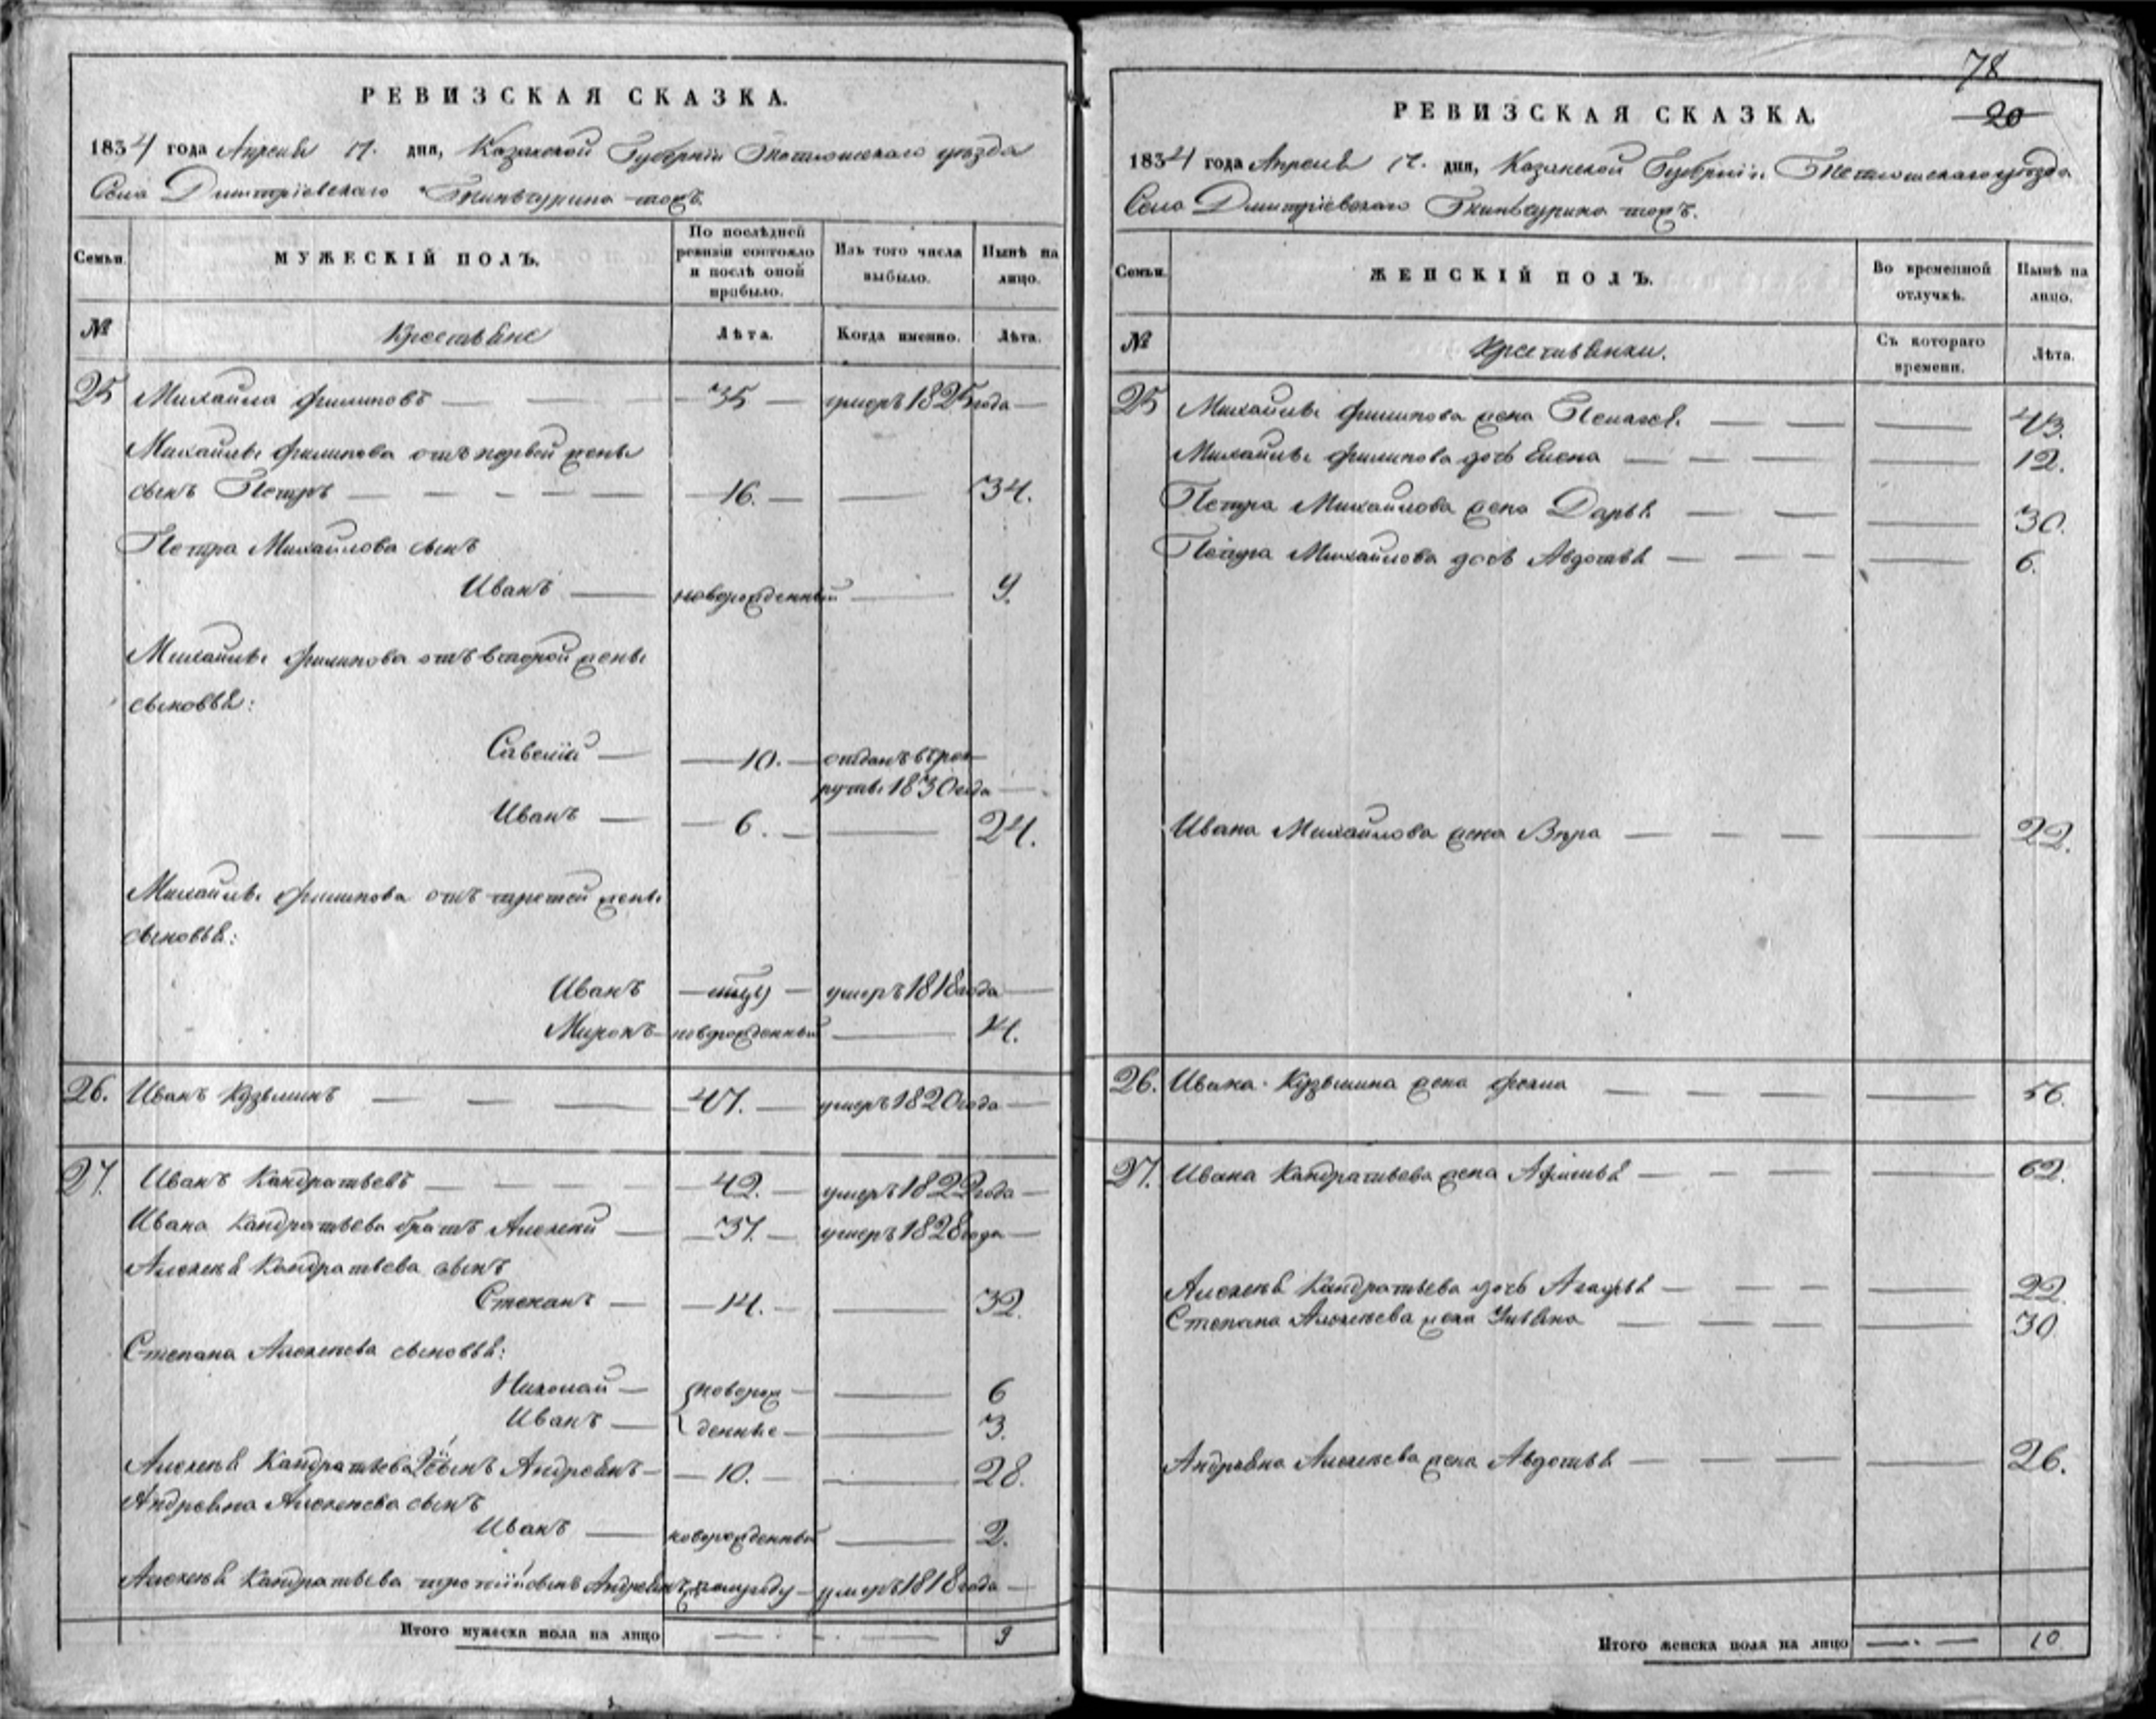 РЕВИЗСКАЯ СКАЗКА.
1834 года Апреля 17. дня, Казанской Губернии Тетюшскаго уезда
Села Димитріевскаго тожъ.
Семьи
МУЖЕСКІЙ ПОЛЪ.
По послѣдней ревизіи состояло и послѣ оной прибыло.
Изъ того числа выбыло.
Нынѣ на лицо.
№
Крестьяне
Лѣта.
Когда именно.
Лѣта.
25 Михайла Филиповъ 35 умеръ 1825 года
Михайлы Филипова отъ первой жены
сынъ Петръ 16. 34.
Петра Михайлова сынъ
Иванъ новорожденный 9.
Михайлы Филипова отъ второй жены
сыновья:
Савелій 10. отданъ въ рек
руты 1830 года
Иванъ 6. 24.
Михайлы Филипова отъ третей жены
сыновья:
Иванъ умеръ 1818 года
Миронъ новорожденный 14.
26. Иванъ Кузьминъ 47. умеръ 1820 года
27. Иванъ Кандратьевъ 42. умеръ 1822 года
Ивана Кандратьева братъ Алексей 37. умеръ 1828 года
Алексея Кандратьева сынъ
Степанъ 14. 32.
Степана Алексеева сыновья:
Николай новорож 6
Иванъ денные 3.
Алексея Кандратьева 2й сынъ Андреянъ 10. 28.
Андреяна Алексеева сынъ
Иванъ новорожденный 2.
Алексея Кандратьева третій сынъ Андреянъ полугоду умеръ 1818 года
Итого мужеска пола на лицо 9
78
20
РЕВИЗСКАЯ СКАЗКА.
1834 года Апреля 17. дня, Казанской Губерніи Тетюшскаго уезда
Села Димитріевскаго тожъ.
Семьи
ЖЕНСКІЙ ПОЛЪ.
Во временной отлучкѣ.
Нынѣ на лицо.
№
Крестьянки.
Съ котораго времени.
Лѣта.
25 Михайлы Филипова жена Пелагея 43.
Михайлы Филипова дочь Елена 12.
Петра Михайлова жена Дарья 30.
Петра Михайлова дочь Авдотья 6.
Ивана Михайлова жена Вера 22.
26. Ивана Кузьмина жена Фекла 56.
27. Ивана Кандратьева жена 62.
Алексея Кандратьева дочь Агафья 22.
Степана Алексеева жена Ульяна 30
Андреяна Алексеева жена Авдотья 26.
Итого женска пола на лицо 10